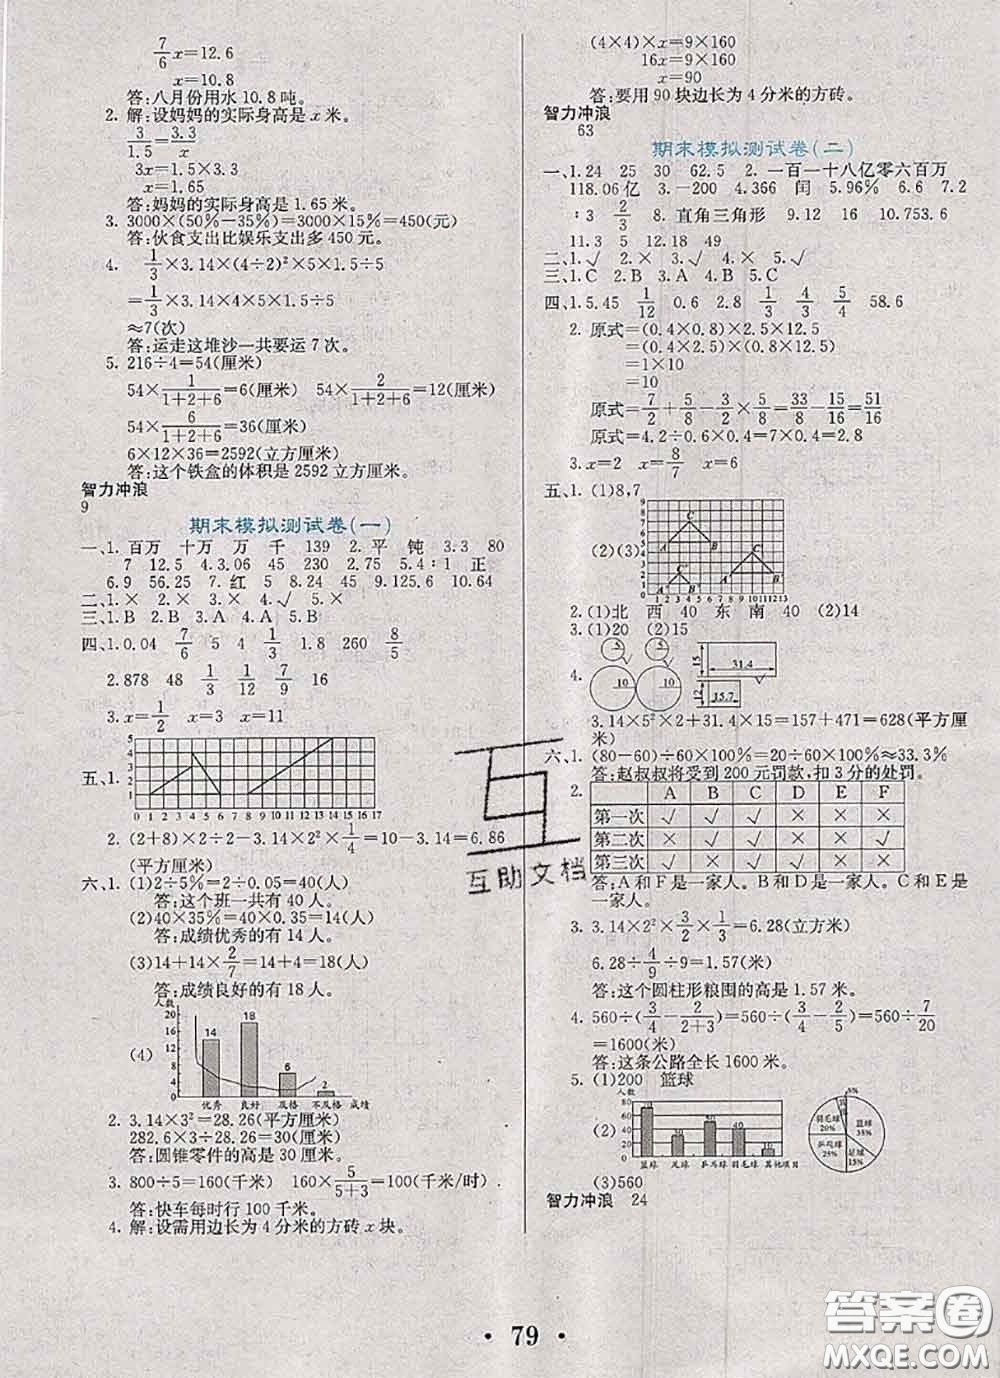 7/6 x=12.6
x=10.8
答:八月份用水10.8吨。
2. 解:设妈妈的实际身高是x米。
3/1.5=3.3/x
3x=1.5×3.3
x=1.65
答:妈妈的实际身高是1.65米。
3. 3000×(50%-35%)=3000×15%=450(元)
答:伙食支出比娱乐支出多450元。
4. 1/3×3.14×(4÷2)²×5×1.5÷5
=1/3×3.14×4×5×1.5÷5
≈7(次)
答:运走这堆沙一共要运7次。
5. 216÷4=54(厘米)
54×1/(1+2+6)=6(厘米) 54×2/(1+2+6)=12(厘米)
54×6/(1+2+6)=36(厘米)
6×12×36=2592(立方厘米)
答:这个铁盒的体积是2592立方厘米。
智力冲浪
9
期末模拟测试卷(一)
一、1. 百万 十万 万 千 139 2. 平 钝 3. 3 80
7 12.5 4. 3.06 45 230 2.75 5. 4∶1 正
6. 9 56.25 7. 红 5 8. 24 45 9. 125.6 10. 64
二、1.× 2.× 3.× 4.√ 5.×
三、1.B 2.B 3.A 4.A 5.B
四、1. 0.04 7/6 5/7 4 1/3 1.8 260 8/5
2. 878 48 1/3 1/12 7/9 16
3. x=1/2 x=3 x=11
五、1.
5
4
3
2
1
0 1 2 3 4 5 6 7 8 9 10 11 12 13 14 15 16 17
2. (2+8)×2÷2-3.14×2²×1/4=10-3.14=6.86
(平方厘米)
六、1. (1)2÷5%=2÷0.05=40(人)
答:这个班一共有40人。
(2)40×35%=40×0.35=14(人)
答:成绩优秀的有14人。
(3)14+14×2/7=14+4=18(人)
答:成绩良好的有18人。
(4)
人数
20
16
12
8
4
0
14 18 6 2
优秀 良好 及格 不及格 成绩
2. 3.14×3²=28.26(平方厘米)
282.6×3÷28.26=30(厘米)
答:圆锥零件的高是30厘米。
3. 800÷5=160(千米) 160×5/(5+3)=100(千米/时)
答:快车每时行100千米。
4. 解:设需用边长为4分米的方砖x块。
(4×4)×x=9×160
16x=9×160
x=90
答:要用90块边长为4分米的方砖。
智力冲浪
63
期末模拟测试卷(二)
一、1. 24 25 30 62.5 2. 一百一十八亿零六百万
118.06亿 3. -200 4. 366 闰 5. 96% 6. 6 7. 2
∶3 2/3 8. 直角三角形 9. 12 16 10. 753.6
11. 3 5 12. 18 49
二、1.√ 2.× 3.√ 4.× 5.√
三、1.C 2.B 3.A 4.B 5.C
四、1. 5.45 1/12 0.6 2.8 1/3 4/3 5/4 58.6
2. 原式=(0.4×0.8)×2.5×12.5
=(0.4×2.5)×(0.8×12.5)
=1×10
=10
原式=7/2+5/8-3/2×5/8=33/8-15/16=51/16
原式=4.2÷0.6×0.4=7×0.4=2.8
3. x=2 x=8/7 x=6
五、1. (1)8,7
(2)(3)
2. (1)北 西 40 东 南 40 (2)14
3. (1)20 (2)15
4.
10 10
15 31.4
12 15.7
3.14×5²×2+31.4×15=157+471=628(平方厘
米)
六、1. (80-60)÷60×100%=20÷60×100%≈33.3%
答:赵叔叔将受到200元罚款,扣3分的处罚。
2.
A B C D E F
第一次 √ √ √ × × ×
第二次 × × √ × × √
第三次 √ × × √ × ×
答:A和F是一家人。B和D是一家人。C和E是
一家人。
3. 3.14×2²×3/2×1/3=6.28(立方米)
6.28÷4/9÷9=1.57(米)
答:这个圆柱形粮囤的高是1.57米。
4. 560÷(3/4-2/(2+3))=560÷(3/4-2/5)=560÷7/20
=1600(米)
答:这条公路全长1600米。
5. (1)200 篮球
(2)
人数
80
60
40
20
0
70 30 50 40 10
篮球 足球 乒乓球 羽毛球 其他 项目
5%
羽毛球 20%
篮球 35%
乒乓球 25%
足球 15%
(3)560
智力冲浪 24
互助文档
• 79 •
答案圈
MXQE.COM